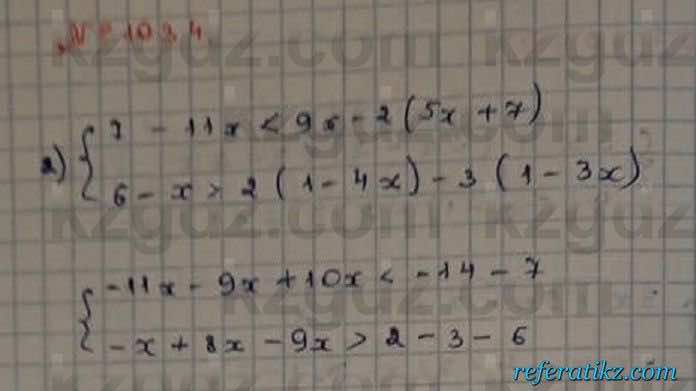 № 1034
2) { 7 - 11x < 9x - 2 (5x + 7)
6 - x > 2 (1 - 4x) - 3 (1 - 3x)
{ -11x - 9x + 10x < -14 - 7
-x + 8x - 9x > 2 - 3 - 6
referatikz.com